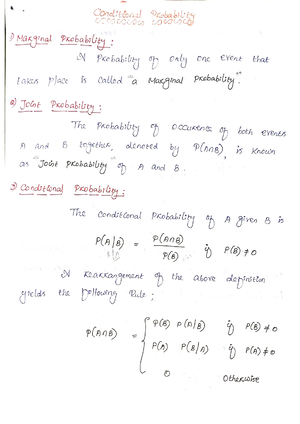 Conditional Probability
1) Marginal Probability :
A Probability of only one event that
takes place is called "a Marginal Probability".
2) Joint Probability :
The Probability of occurrence of both events
A and B together, denoted by P(A∩B), is known
as "Joint Probability" of A and B.
3) Conditional Probability :
The conditional probability of A given B is
P(A|B) = P(A∩B) / P(B) if P(B) ≠ 0
A Rearrangement of the above definition
yields the following Rule ;
P(A∩B) = { P(B) P(A|B) if P(B) ≠ 0
P(A) P(B|A) if P(A) ≠ 0
0 Otherwise